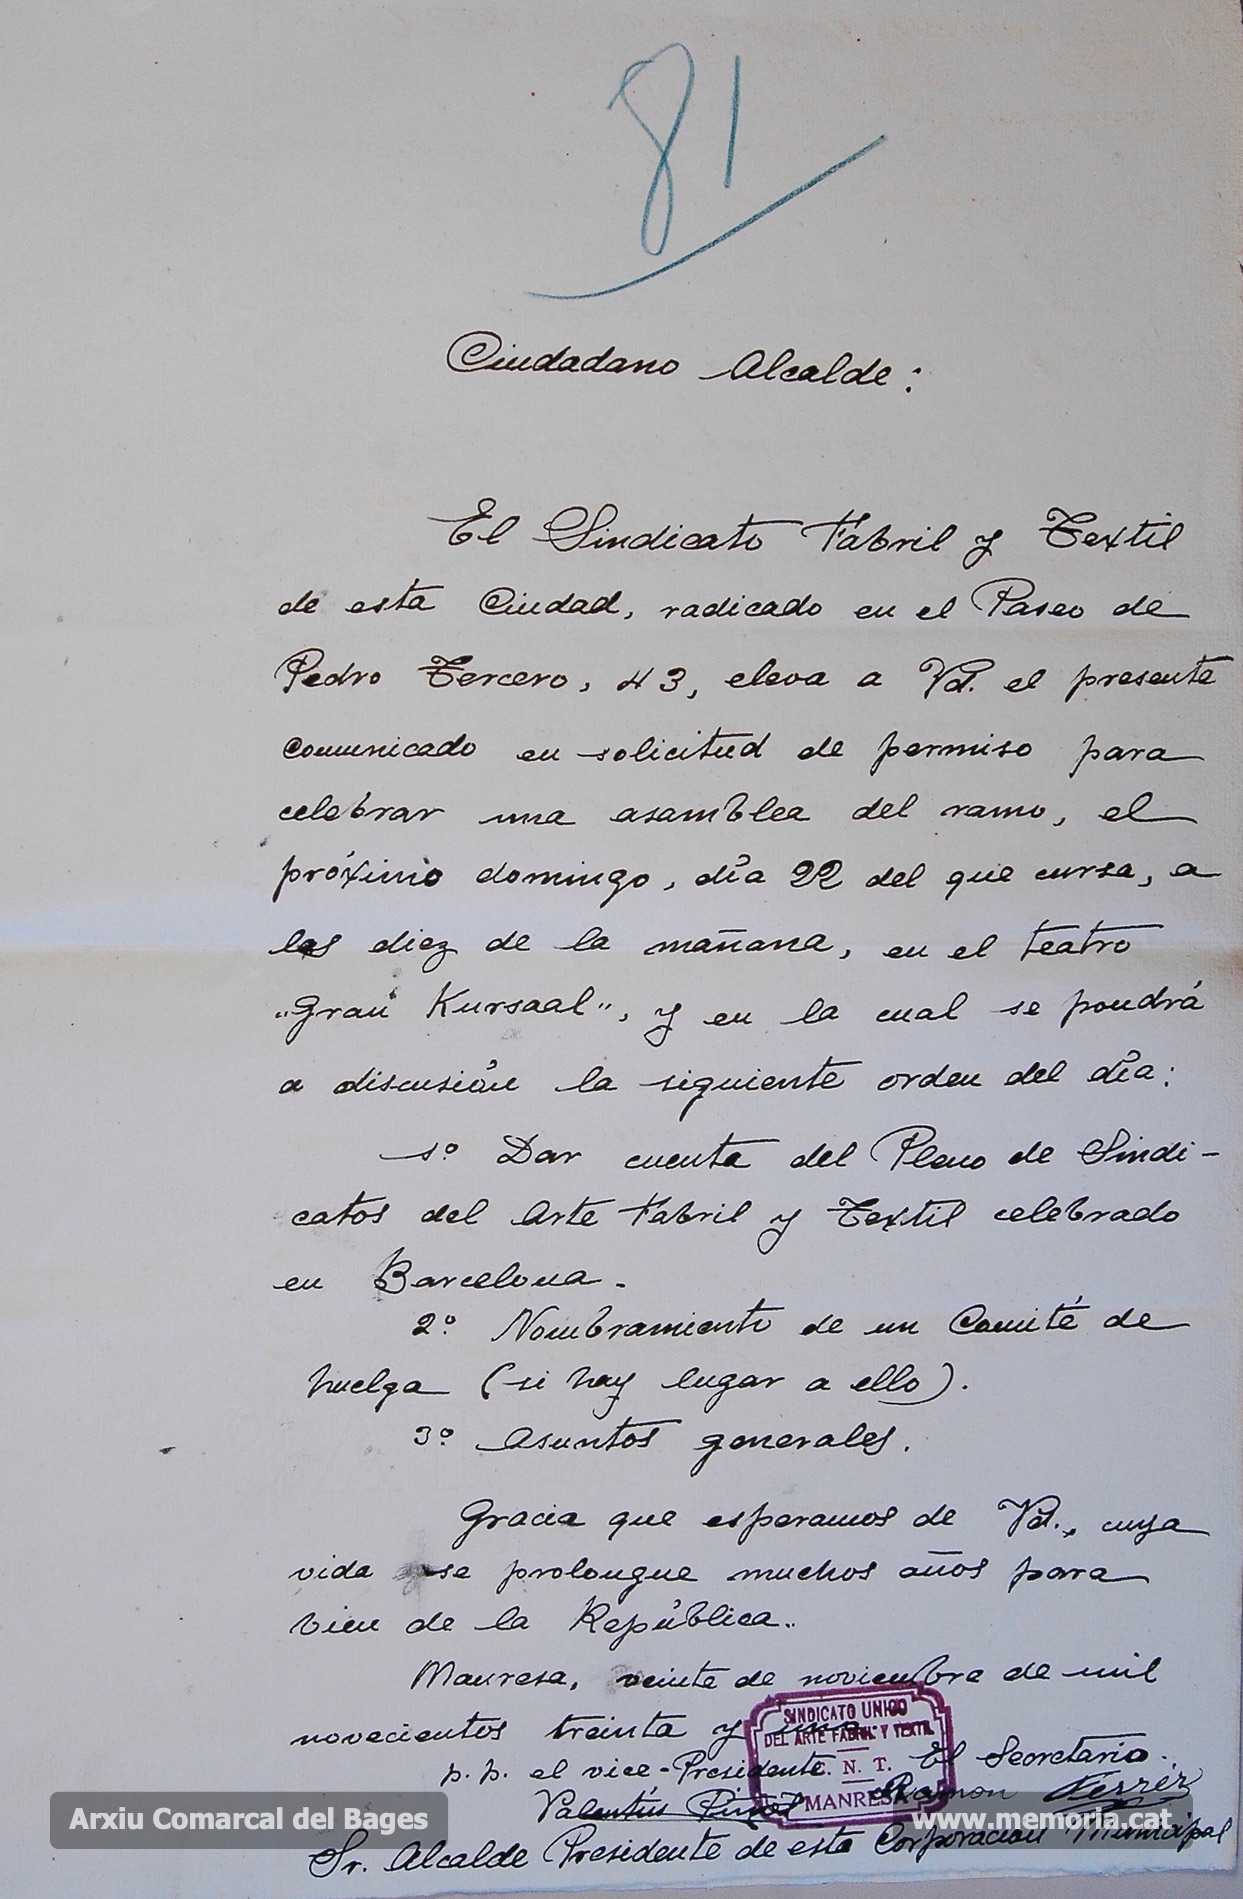 81
Ciudadano Alcalde:
El Sindicato Fabril y Textil
de esta Ciudad, radicado en el Paseo de
Pedro Tercero, 43, eleva a Vd. el presente
comunicado en solicitud de permiso para
celebrar una asamblea del ramo, el
próximo domingo, día 22 del que cursa, a
las diez de la mañana, en el teatro
"Gran Kursaal", y en la cual se pondrá
a discusión la siguiente orden del día:
1º Dar cuenta del Pleno de Sindi-
catos del Arte Fabril y Textil celebrado
en Barcelona.
2º Nombramiento de un Comité de
huelga (si hay lugar a ello).
3º Asuntos generales.
Gracia que esperamos de Vd., cuya
vida se prolongue muchos años para
bien de la República.
Manresa, veinte de noviembre de mil
novecientos treinta y uno.
SINDICATO UNICO
DEL ARTE FABRIL Y TEXTIL
C. N. T.
MANRESA
p. p. el vice-Presidente El Secretario.
Valentín Ramon
Sr. Alcalde Presidente de esta Corporación Municipal
Arxiu Comarcal del Bages
www.memoria.cat